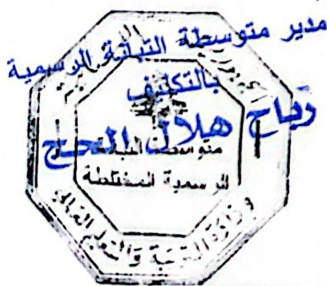 مدير متوسطة التبانة الرسمية
بالتكليف
رباح هلال الحج
متوسطة التبانة
الرسمية المختلطة
وزارة التربية والتعليم العالي